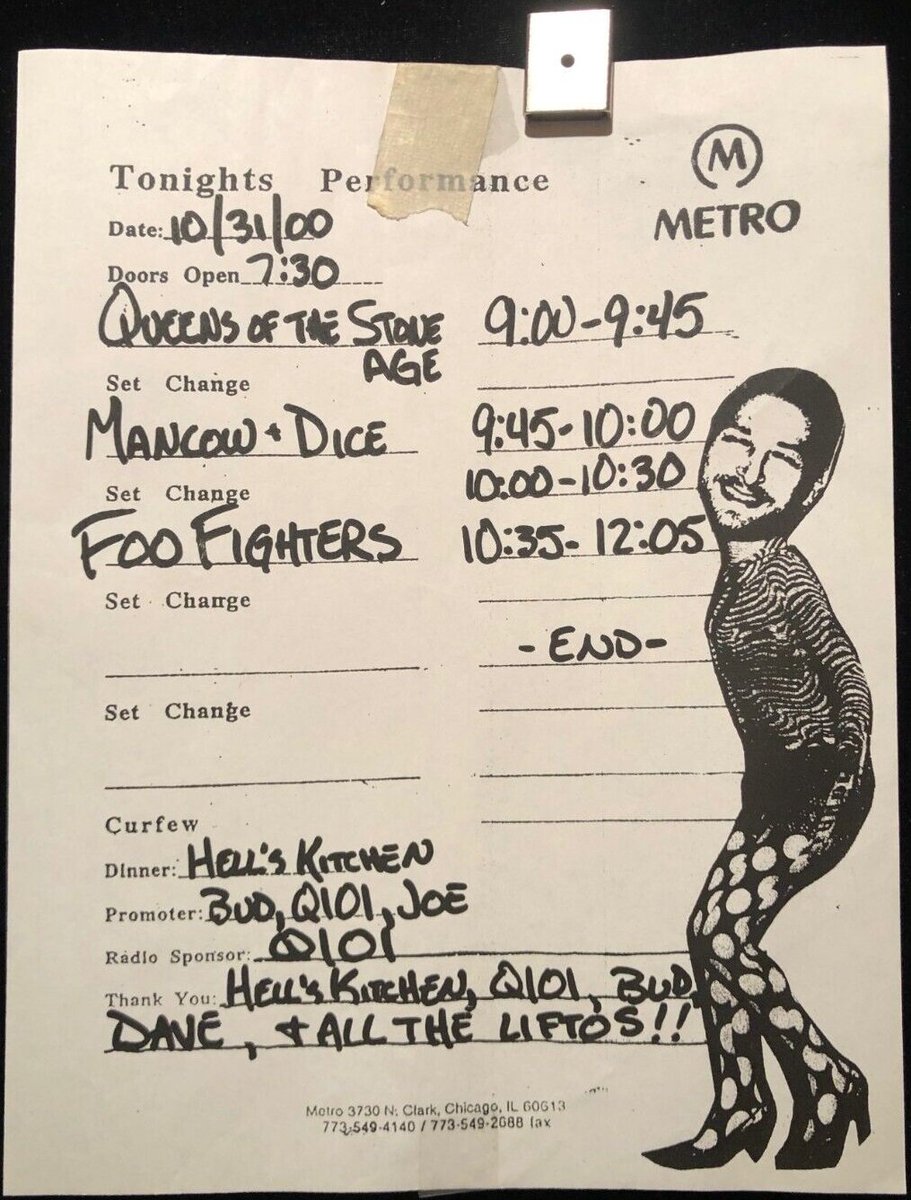 M
METRO
Tonights Performance
Date: 10/31/00
Doors Open 7:30
QUEENS OF THE STONE 9:00-9:45
AGE
Set Change
MANCOW + DICE 9:45-10:00
Set Change 10:00-10:30
FOO FIGHTERS 10:35-12:05
Set Change
-END-
Set Change
Curfew
Dinner: HELL'S KITCHEN
Promoter: BUD, Q101, JOE
Radio Sponsor: Q101
Thank You: HELL'S KITCHEN, Q101, BUD,
DAVE, + ALL THE LIFTOS!!
Metro 3730 N. Clark, Chicago, IL 60613
773-549-4140 / 773-549-2088 fax